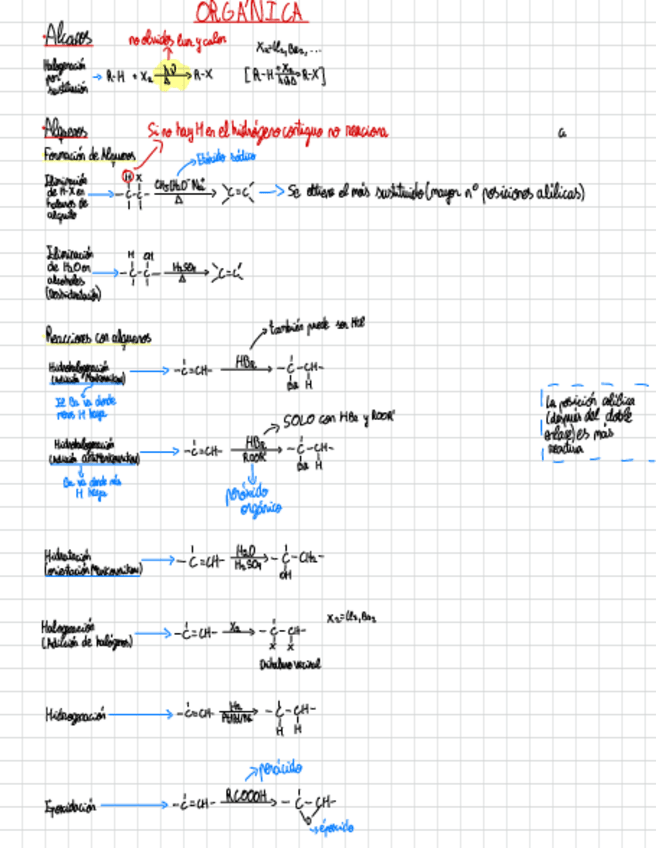 ORGÁNICA
Alcanos
no olvides luz y calor
X₂=Cl₂, Br₂, ...
Halogenación
por
sustitución
R-H + X₂ hν Δ R-X
[R-H +X₂ hν,Δ R-X]
Alquenos
Si no hay H en el hidrógeno contiguo no reacciona
Formación de Alquenos
Etóxido sódico
Eliminación
de H-X en
haluros de
alquilo
H X
-C-C-
CH₃CH₂O⁻Na⁺
Δ
C=C
Se obtiene el más sustituido (mayor nº posiciones alílicas)
Eliminación
de H₂O en
alcoholes
(Deshidratación)
H OH
-C-C-
H₂SO₄
Δ
C=C
Reacciones con alquenos
también puede ser HCl
Hidrohalogenación
(Adición Markovnikov)
-C=CH-
HBr
-C-CH-
Br H
El Br va donde
menos H haya
La posición alílica
(después del doble
enlace) es más
reactiva
SOLO con HBr y ROOR'
Hidrohalogenación
(Adición antiMarkovnikov)
-C=CH-
HBr
ROOR'
-C-CH-
Br H
Br va donde más
H haya
peróxido
orgánico
Hidratación
(orientación Markovnikov)
-C=CH-
H₂O
H₂SO₄
-C-CH₂-
OH
Halogenación
(Adición de halógenos)
-C=CH-
X₂
-C-CH-
X X
X₂=Cl₂, Br₂
Dihaluro vecinal
Hidrogenación
-C=CH-
H₂
Pt/Pd/Ni
-C-CH-
H H
perácido
Epoxidación
-C=CH-
RCOOOH
-C-CH-
O
epóxido